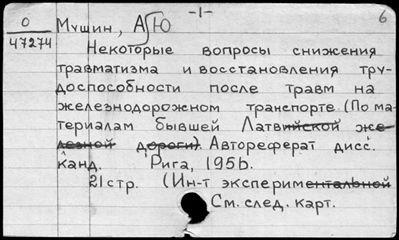 -1-
6
О
47274
Мушин, А. Ю
Некоторые вопросы снижения
травматизма и восстановления тру-
доспособности после травм на
железнодорожном транспорте (По ма-
териалам бывшей Латвийской же-
лезной дороги). Автореферат дисс.
канд. Рига, 1956.
21 стр. (Ин-т экспериментальной
См. след. карт.